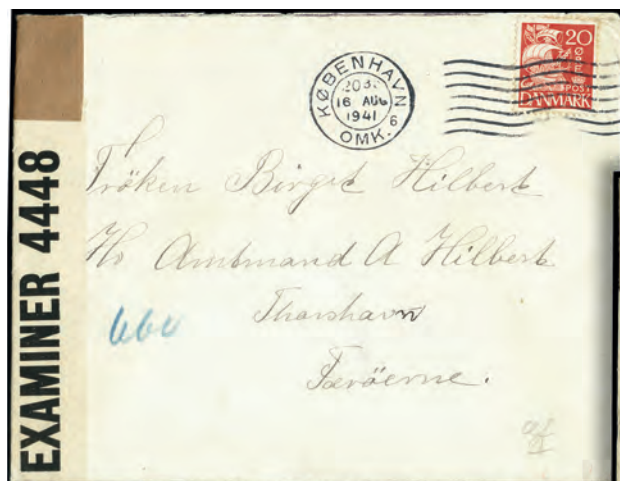 EXAMINER 4448
KØBENHAVN
16 AUG
1941
6
OMK.
20
ØRE
POST
DANMARK
Fröken Birgit Hilbert
Hr Amtmand A Hilbert
Thorshavn
Færöerne.